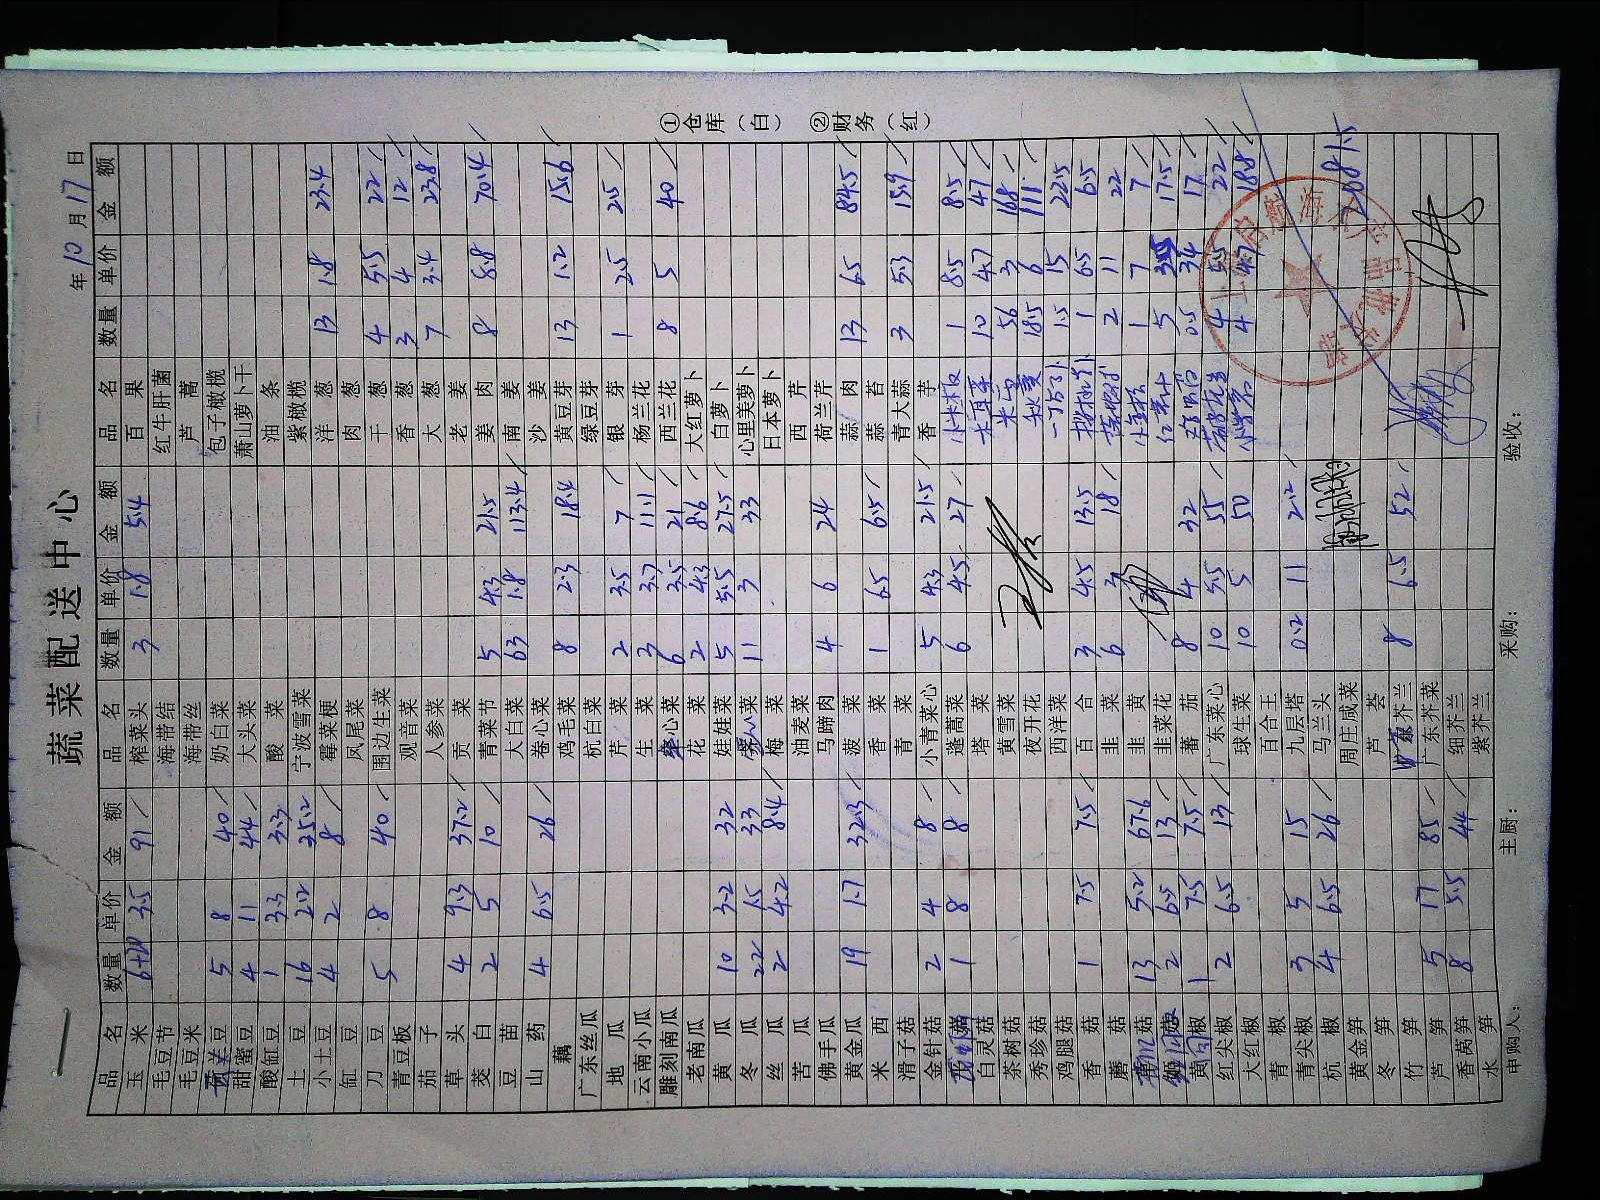 蔬菜配送中心
年 10 月 17 日
品名 数量 单价 金额 品名 数量 单价 金额 品名 数量 单价 金额
玉米 6+20 3.5 91 榨菜头 3 1.8 5.4 百果
毛豆节 海带结 红牛肝菌
毛豆米 海带丝 芦蒿
豆 5 8 40 奶白菜 包子橄榄
甜蜜豆 4 11 44 大头菜 萧山萝卜干
酸缸豆 1 3.3 3.3 酸菜 油条
土豆 16 2.2 35.2 宁波雪菜 紫橄榄
小土豆 4 2 8 霉菜梗 洋葱 13 1.8 23.4
缸豆 凤尾菜 肉葱
刀豆 5 8 40 围边生菜 干葱 4 5.5 22
青豆板 观音菜 香葱 3 4 12
茄子 人参菜 大葱 7 3.4 23.8
草头 4 9.3 37.2 贡菜 老姜
茭白 2 5 10 青菜节 5 4.3 21.5 姜肉 8 8.8 70.4
豆苗 大白菜 63 1.8 113.4 南姜
山药 4 6.5 26 卷心菜 沙姜
藕 鸡毛菜 8 2.3 18.4 黄豆芽 13 1.2 15.6
广东丝瓜 杭白菜 绿豆芽
地瓜 芹菜 2 3.5 7 银芽 1 2.5 2.5
云南小瓜 生菜 3 3.7 11.1 杨兰花
雕刻南瓜 心菜 6 3.5 21 西兰花 8 5 40
老南瓜 花菜 2 4.3 8.6 大红萝卜
黄瓜 10 3.2 32 娃娃菜 5 5.5 27.5 白萝卜
冬瓜 22 1.5 33 菜 11 3 33 心里美萝卜
丝瓜 2 4.2 8.4 梅菜 日本萝卜
苦瓜 油麦菜 西芹
佛手瓜 马蹄肉 4 6 24 荷兰芹
黄金瓜 19 1.7 32.3 菠菜 蒜肉 13 6.5 84.5
米西 香菜 1 6.5 6.5 蒜苔
滑子菇 青菜 青大蒜 3 5.3 15.9
金针菇 2 4 8 小青菜心 5 4.3 21.5 香芋
1 8 8 蓬蒿菜 6 4.5 27 小米椒 1 8.5 8.5
白灵菇 塔菜 木耳菜 10 4.7 47
茶树菇 黄雪菜 米苋 56 3 168
秀珍菇 夜开花 秋葵 18.5 6 111
鸡腿菇 西洋菜 1.5 15 22.5
香菇 1 7.5 7.5 百合 3 4.5 13.5 1 6.5 6.5
蘑菇 韭菜 6 3 18 2 11 22
菇 13 5.2 67.6 韭黄 1 7 7
2 6.5 13 韭菜花 5 3.5 17.5
椒 1 7.5 7.5 番茄 8 4 32 0.5 34 17
红尖椒 2 6.5 13 广东菜心 10 5.5 55 4 5.5 22
大红椒 球生菜 10 5 50 4 4.7 18.8
青椒 百合王
青尖椒 3 5 15 九层塔 0.2 11 2.2
杭椒 4 6.5 26 马兰头
黄金笋 周庄咸菜 2081.5
冬笋 芦荟
竹笋 芥兰 8 6.5 52
芦笋 5 17 85 广东芥菜
香莴笋 8 5.5 44 细芥兰
水笋 紫芥兰
申购人： 主厨： 采购： 验收：
①仓库（白） ②财务（红）